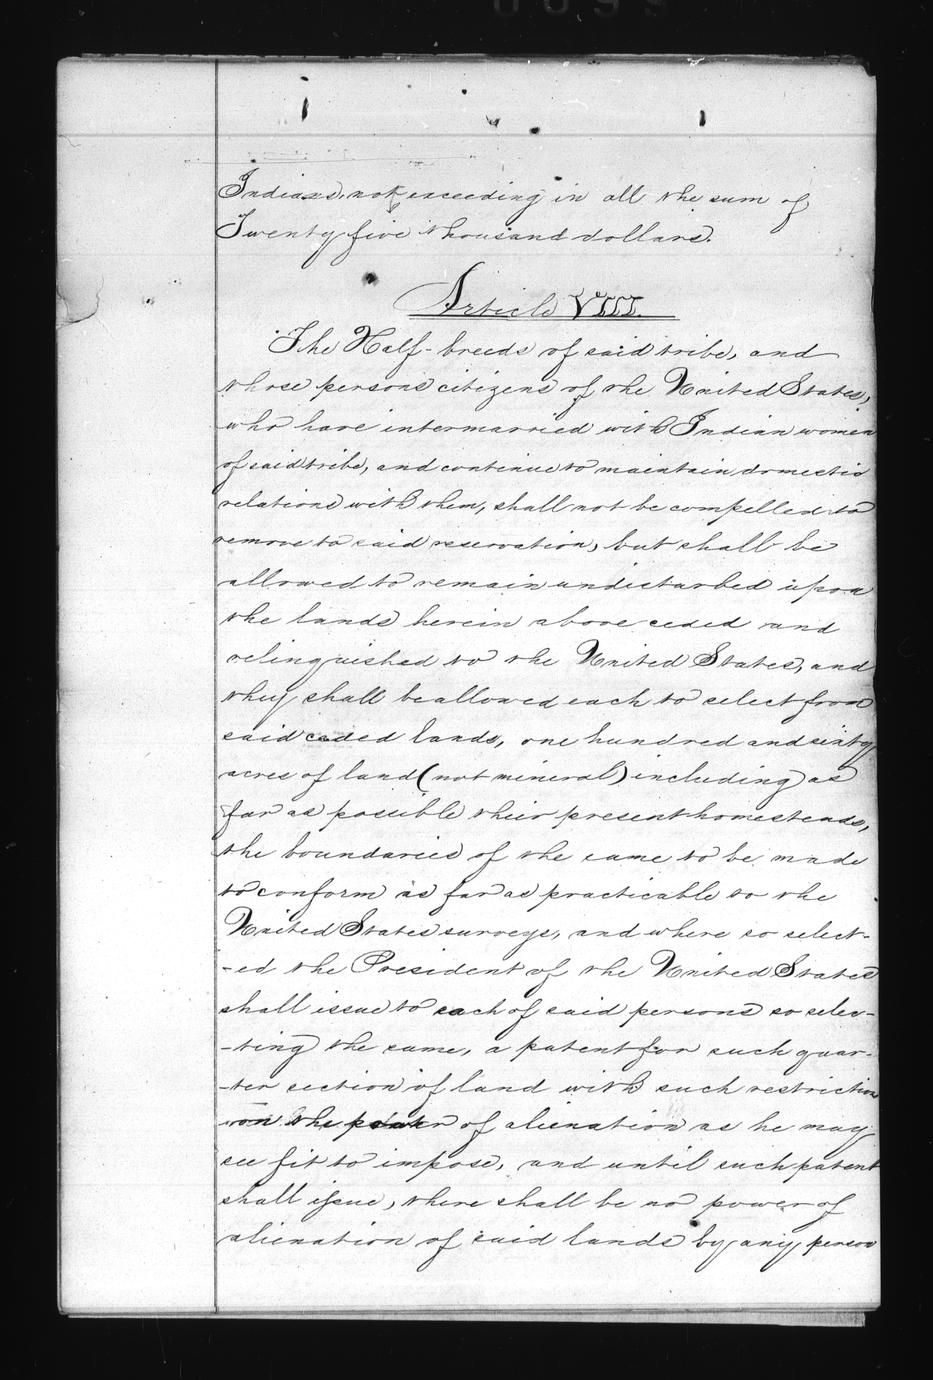 Indians, not exceeding in all the sum of
Twenty five thousand dollars.
Article VIII.
The Half-breeds of said tribe, and
those persons citizens of the United States,
who have intermarried with Indian women
of said tribe, and continue to maintain domestic
relations with them, shall not be compelled to
remove to said reservation, but shall be
allowed to remain undisturbed upon
the lands herein above ceded and
relinquished to the United States, and
they shall be allowed each to select from
said ceded lands, one hundred and sixty
acres of land (not mineral) including as
far as possible their present homesteads,
the boundaries of the same to be made
to conform as far as practicable to the
United States surveys, and where so select-
-ed the President of the United States
shall issue to each of said persons so selec-
-ting the same, a patent for such quar-
-ter section of land with such restriction
on the power of alienation as he may
see fit to impose, and until such patent
shall issue, there shall be no power of
alienation of said lands by any person